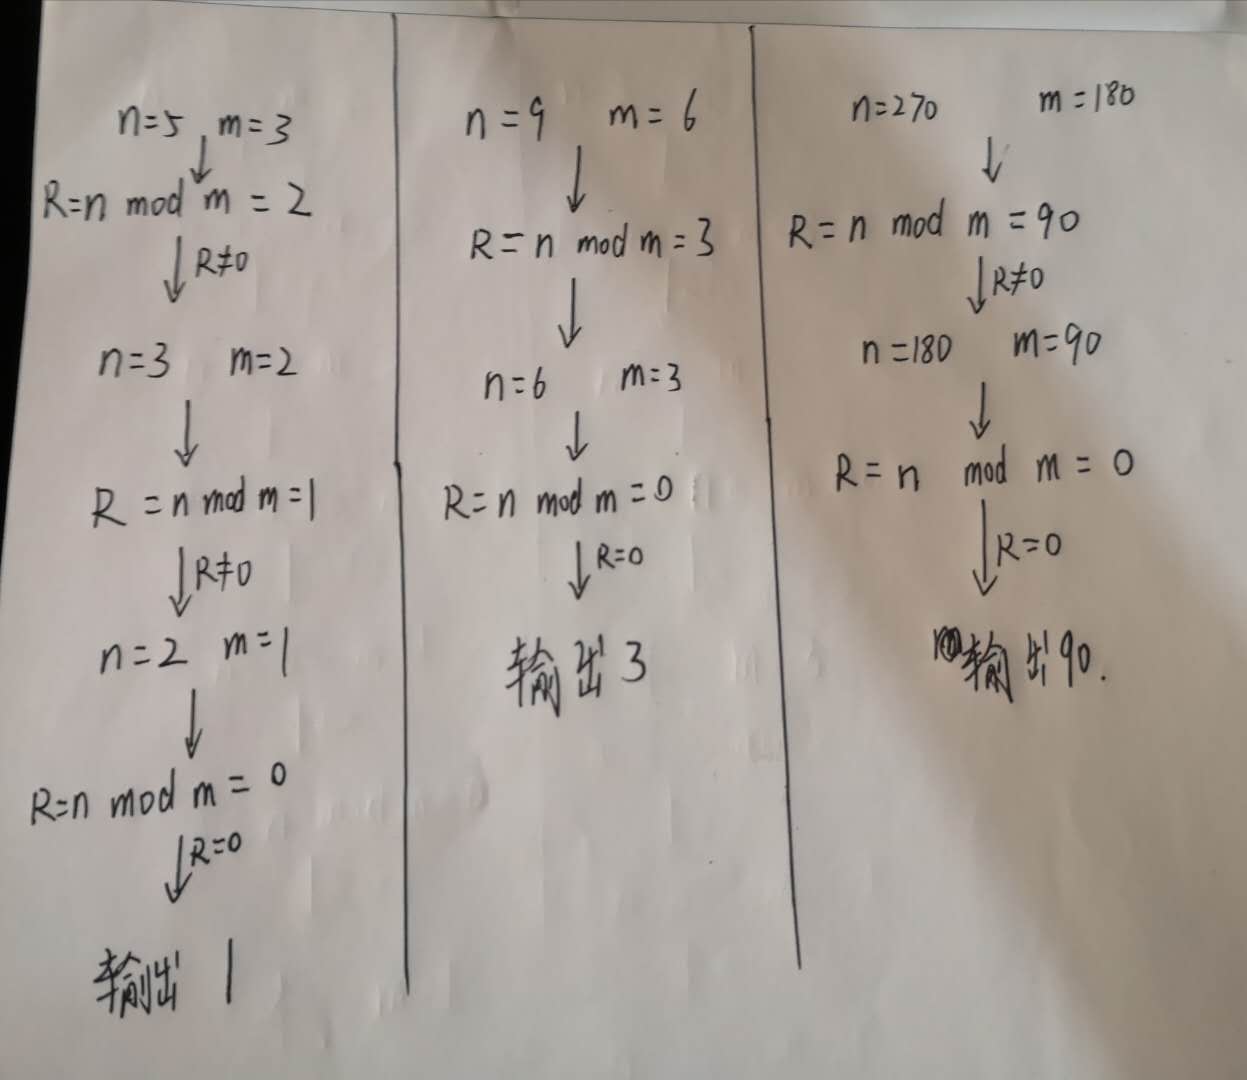 n=5 m=3
R=n mod m = 2
R≠0
n=3 m=2
R=n mod m=1
R≠0
n=2 m=1
R=n mod m = 0
R=0
输出 1
n=9 m=6
R=n mod m=3
n=6 m=3
R=n mod m=0
R=0
输出3
n=270 m=180
R=n mod m=90
R≠0
n=180 m=90
R=n mod m=0
R=0
输出90.